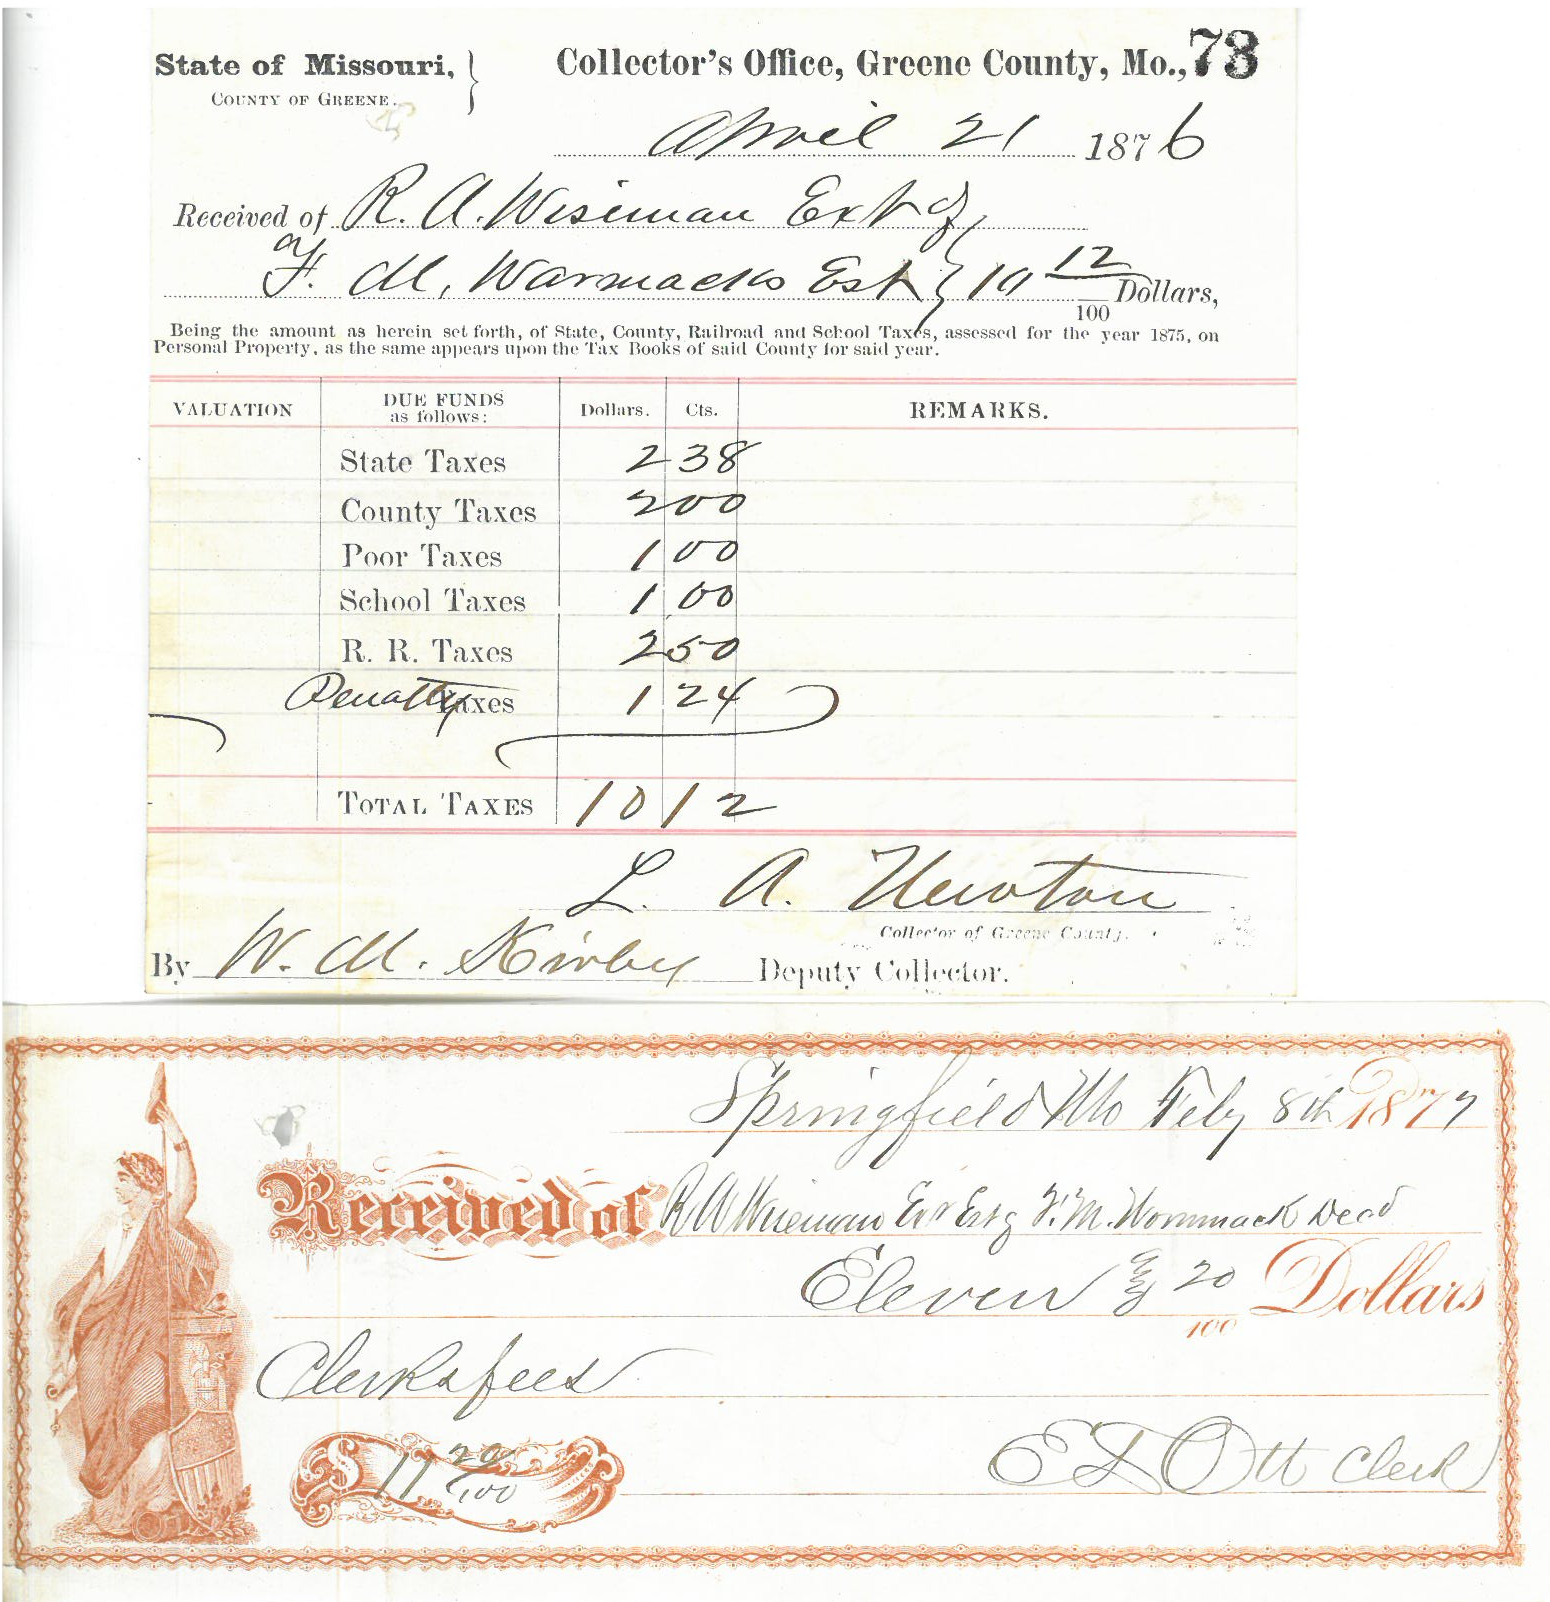 State of Missouri, } Collector's Office, Greene County, Mo., 73
COUNTY OF GREENE.
April 21 1876
Received of R. A. Wiseman Exr of
of F. M. Warmacks Est } 10 12/100 Dollars,
Being the amount as herein set forth, of State, County, Railroad and School Taxes, assessed for the year 1875, on
Personal Property, as the same appears upon the Tax Books of said County for said year.
VALUATION DUE FUNDS as follows: Dollars. Cts. REMARKS.
State Taxes 2 38
County Taxes 2 00
Poor Taxes 1 00
School Taxes 1 00
R. R. Taxes 2 50
Penalty Taxes 1 24
TOTAL TAXES 10 12
L. A. Newton
Collector of Greene County.
By W. M. Kirby Deputy Collector.
Springfield Mo Feby 8th 1877
Received of R A Wiseman Exr Est of F. M. Wommack Decd
Eleven & 20/100 Dollars
Clerks fees
$ 11 20/100
E D Ott Clerk